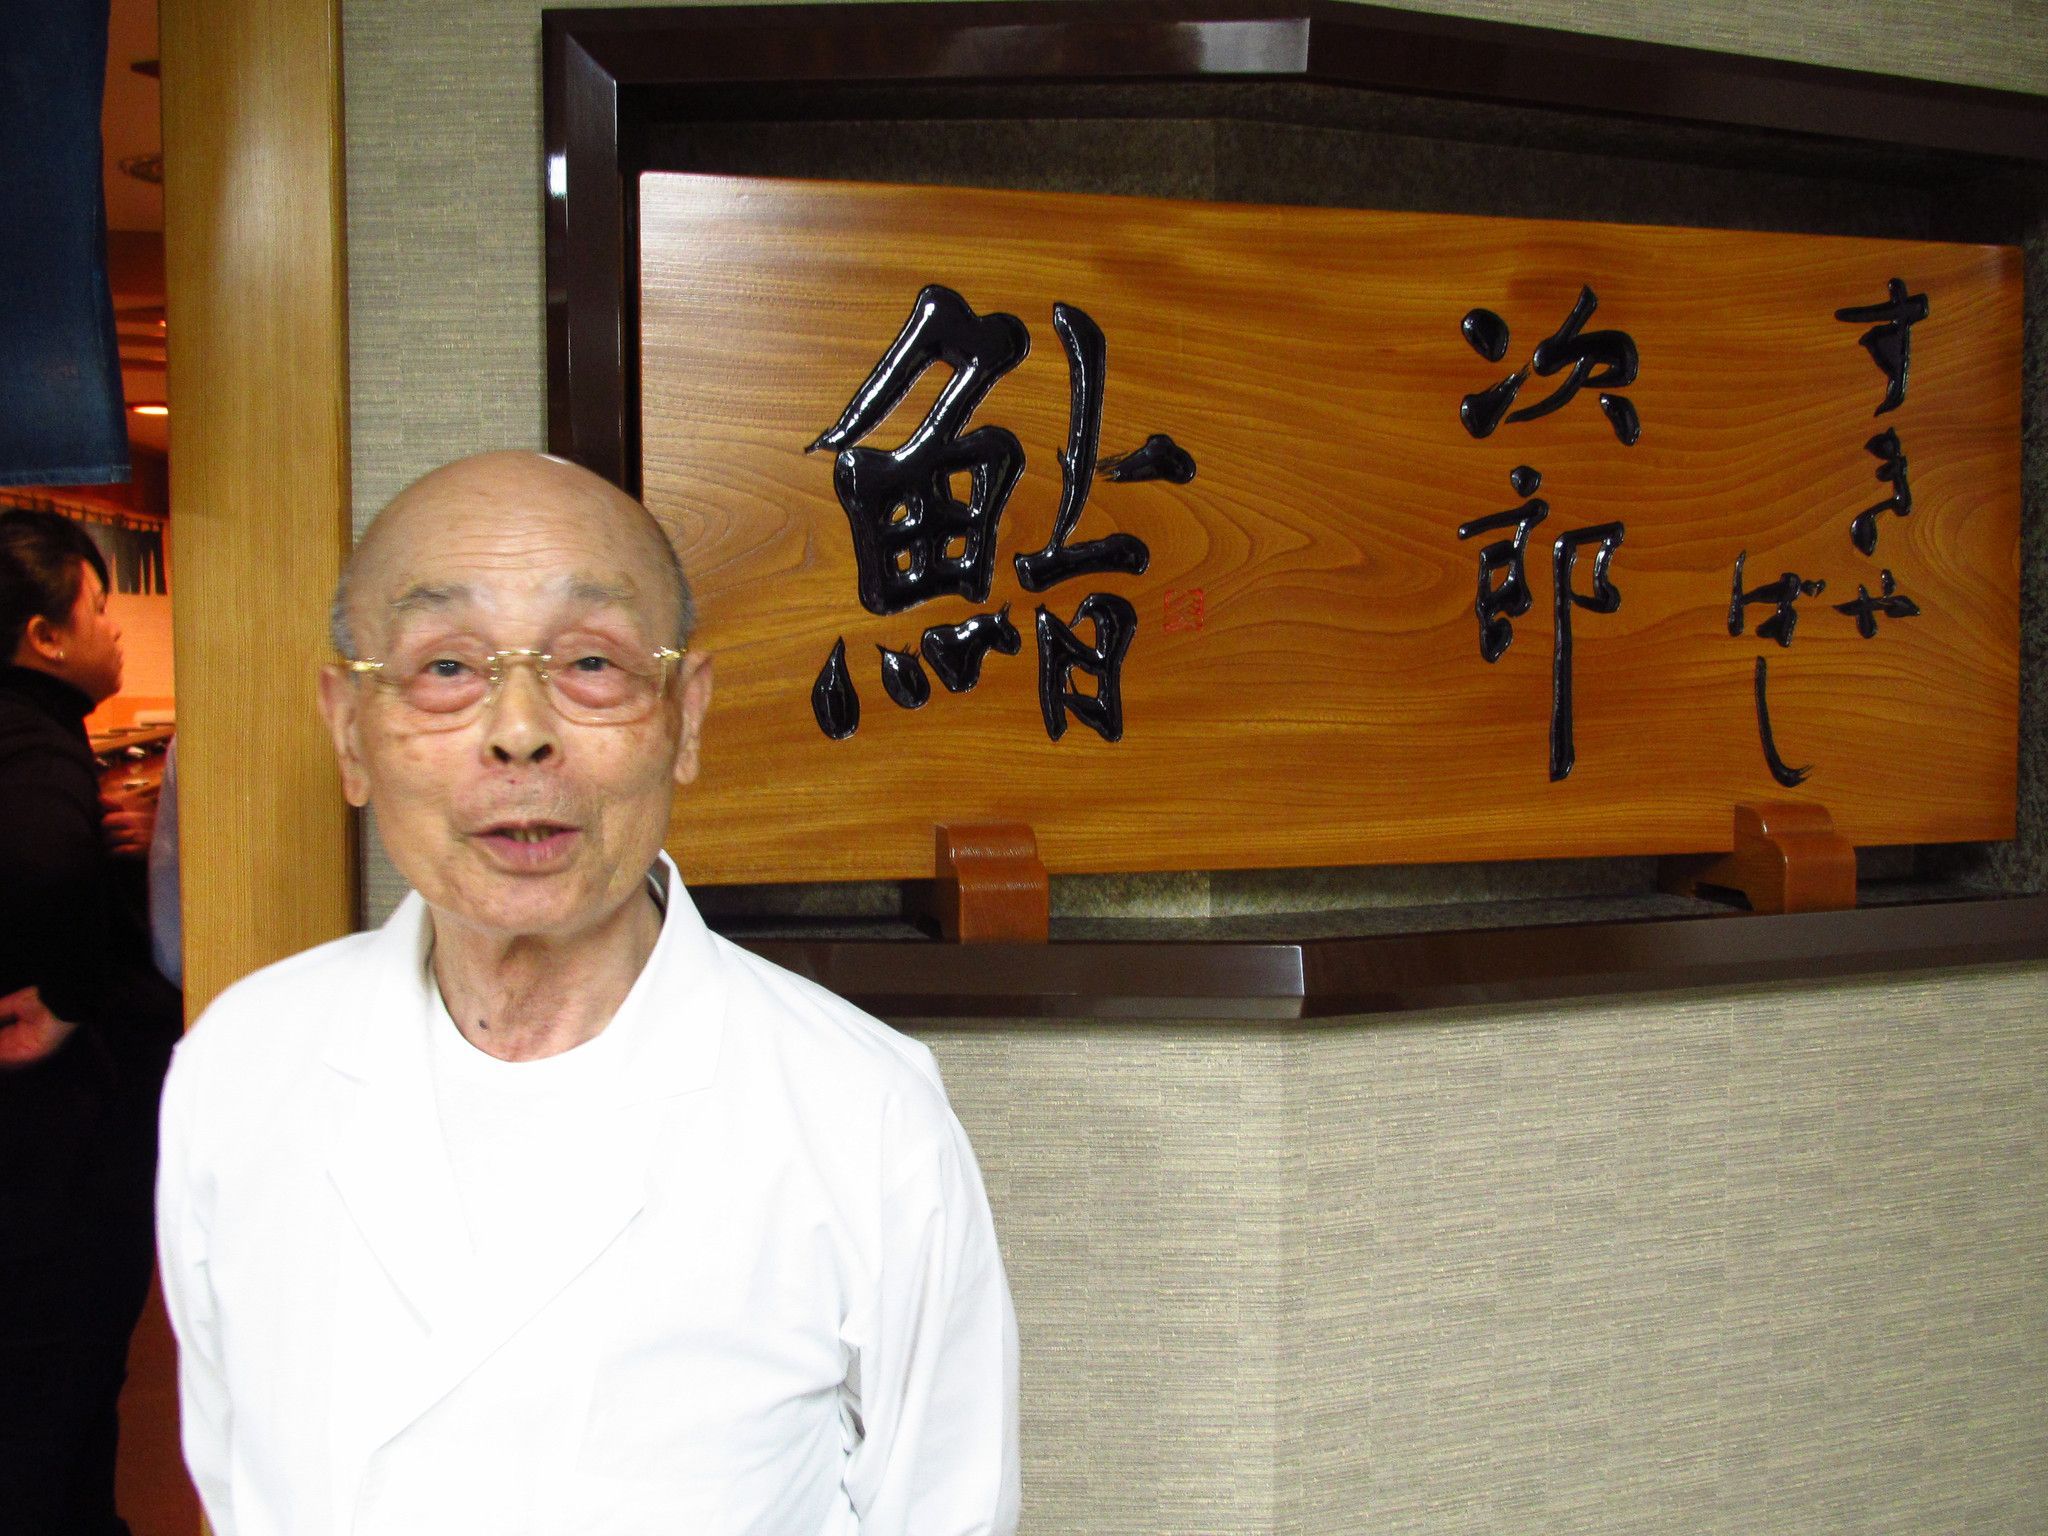 すきやばし
次郎
鮨